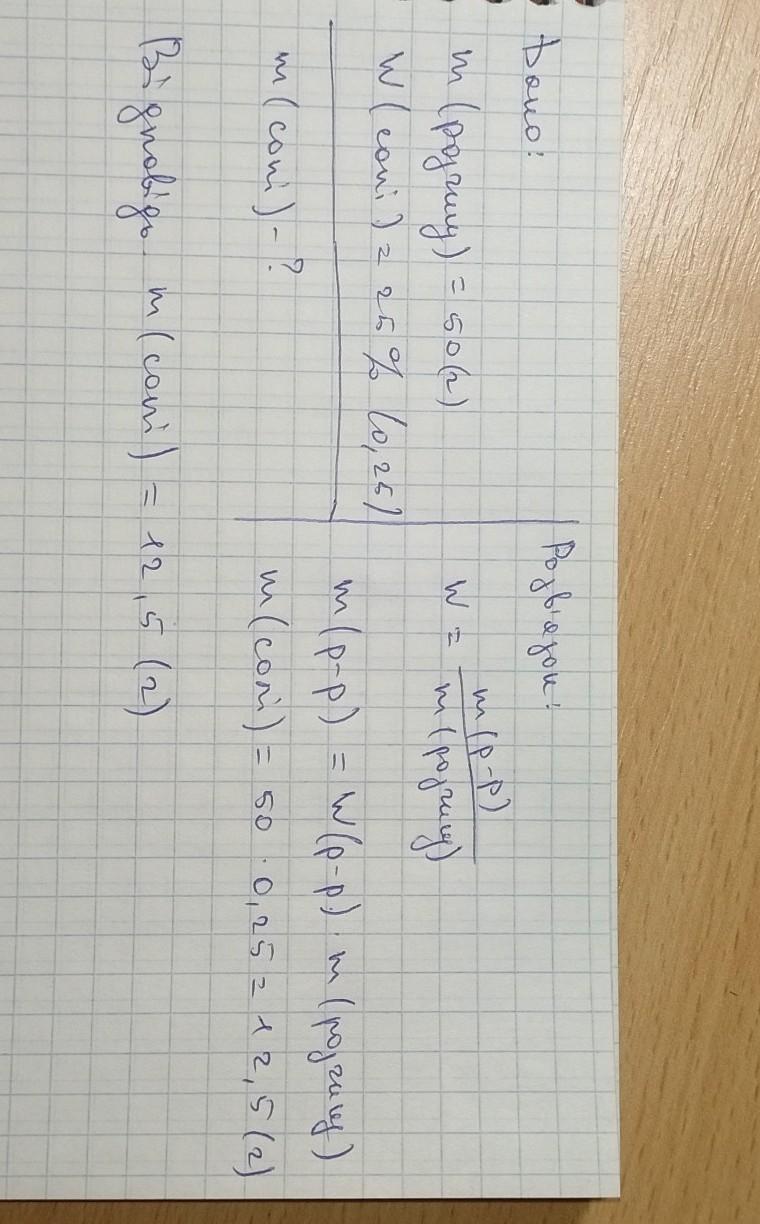 Дано:
m(розчину) = 50(г)
W(солі) = 25% (0,25)
m(солі) - ?
Розв'язок:
W = m(р-р) / m(розчину)
m(р-р) = W(р-р) · m(розчину)
m(солі) = 50 · 0,25 = 12,5(г)
Відповідь. m(солі) = 12,5(г)